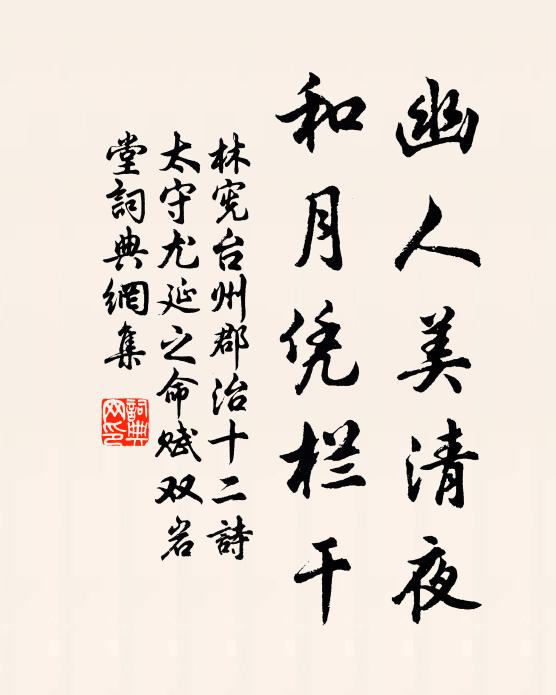 幽人美清夜
和月凭栏干
林宪台州郡治十二詩
太守尤延之命赋双岩
堂詞典網集
詞典
网印